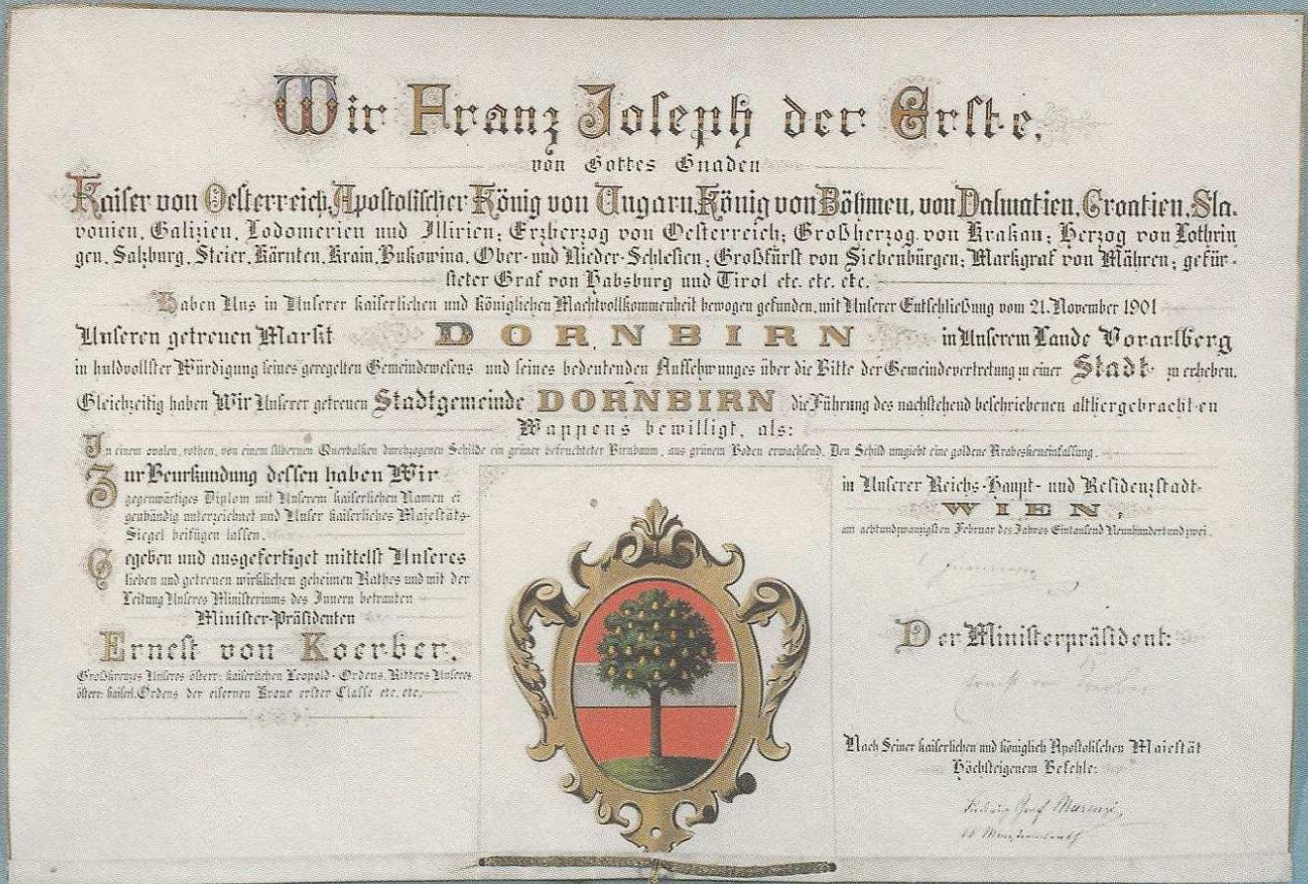 Wir Franz Joseph der Erste,
von Gottes Gnaden
Kaiser von Oesterreich, Apostolischer König von Ungarn, König von Böhmen, von Dalmatien, Croatien, Sla-
vonien, Galizien, Lodomerien und Illirien; Erzherzog von Oesterreich; Großherzog von Krakau; Herzog von Lothrin
gen, Salzburg, Steier, Kärnten, Krain, Bukowina, Ober- und Nieder-Schlesien; Großfürst von Siebenbürgen; Markgraf von Mähren; gefür-
steter Graf von Habsburg und Tirol etc. etc. etc.
Haben Uns in Unserer kaiserlichen und königlichen Machtvollkommenheit bewogen gefunden, mit Unserer Entschließung vom 21. November 1901
Unseren getreuen Markt DORNBIRN in Unserem Lande Vorarlberg
in huldvollster Würdigung seines geregelten Gemeindewesens und seines bedeutenden Aufschwunges über die Bitte der Gemeindevertretung zu einer Stadt zu erheben.
Gleichzeitig haben Wir Unserer getreuen Stadtgemeinde DORNBIRN die Führung des nachstehend beschriebenen althergebrachten
Wappens bewilligt, als:
In einem ovalen, rothen, von einem silbernen Querbalken durchzogenen Schilde ein grüner befruchteter Birnbaum, aus grünem Boden erwachsend. Den Schild umgiebt eine goldene Arabeskeneinfassung.
Zur Beurkundung dessen haben Wir
gegenwärtiges Diplom mit Unserem kaiserlichen Namen ei
genhändig unterzeichnet und Unser kaiserliches Majestäts-
Siegel beifügen lassen.
Gegeben und ausgefertiget mittelst Unseres
lieben und getreuen wirklichen geheimen Rathes und mit der
Leitung Unseres Ministeriums des Innern betrauten
Minister-Präsidenten
Ernest von Koerber,
Großkreuzes Unseres österr: kaiserlichen Leopold-Ordens, Ritters Unseres
österr: kaiserl. Ordens der eisernen Krone erster Classe etc. etc.
in Unserer Reichs-Haupt- und Residenzstadt
WIEN,
am achtundzwanzigsten Februar des Jahres Eintausend Neunhundertundzwei.
Der Ministerpräsident:
Nach Seiner kaiserlichen und königlich Apostolischen Majestät
Höchsteigenem Befehle: